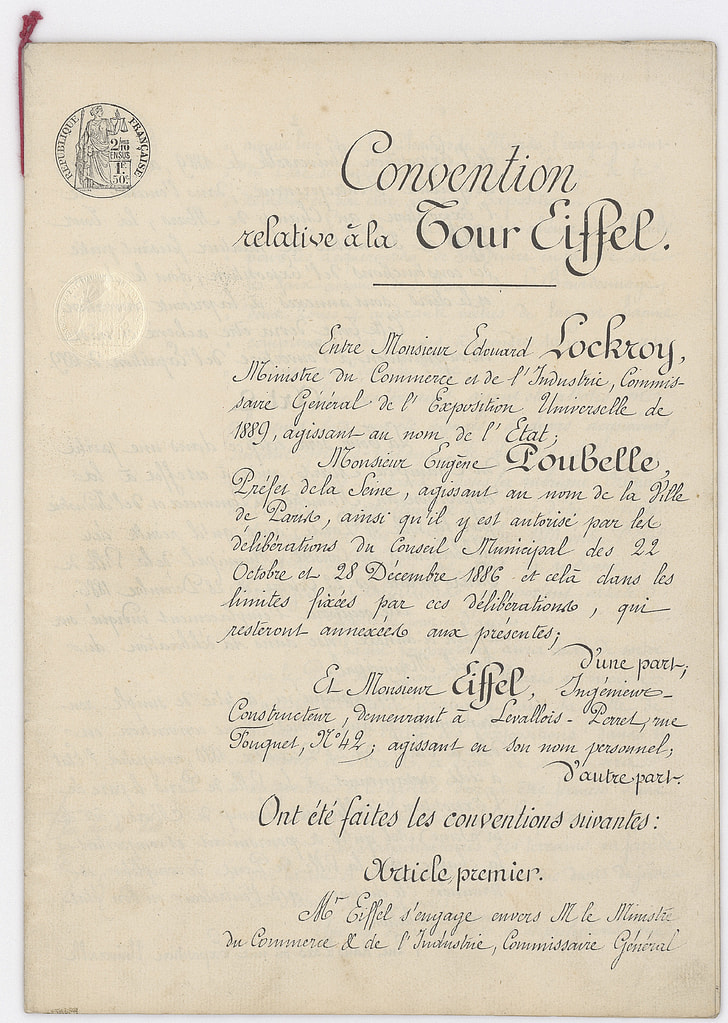 RÉPUBLIQUE FRANÇAISE
2/10
EN SUS
1F.
50c
Convention
relative à la Tour Eiffel.
Entre Monsieur Edouard Lockroy,
Ministre du Commerce et de l'Industrie, Commis-
saire Général de l'Exposition Universelle de
1889, agissant au nom de l'Etat;
Monsieur Eugène Poubelle,
Préfet de la Seine, agissant au nom de la Ville
de Paris, ainsi qu'il y est autorisé par les
délibérations du Conseil Municipal des 22
Octobre et 28 Décembre 1886 et celà dans les
limites fixées par ces délibérations, qui
resteront annexées aux présentes;
D'une part;
Et Monsieur Eiffel, Ingénieur-
Constructeur, demeurant à Levallois-Perret, rue
Fouquet, N° 42; agissant en son nom personnel;
D'autre part.
Ont été faites les conventions suivantes:
Article premier.
Mr Eiffel s'engage envers M le Ministre
du Commerce & de l'Industrie, Commissaire Général